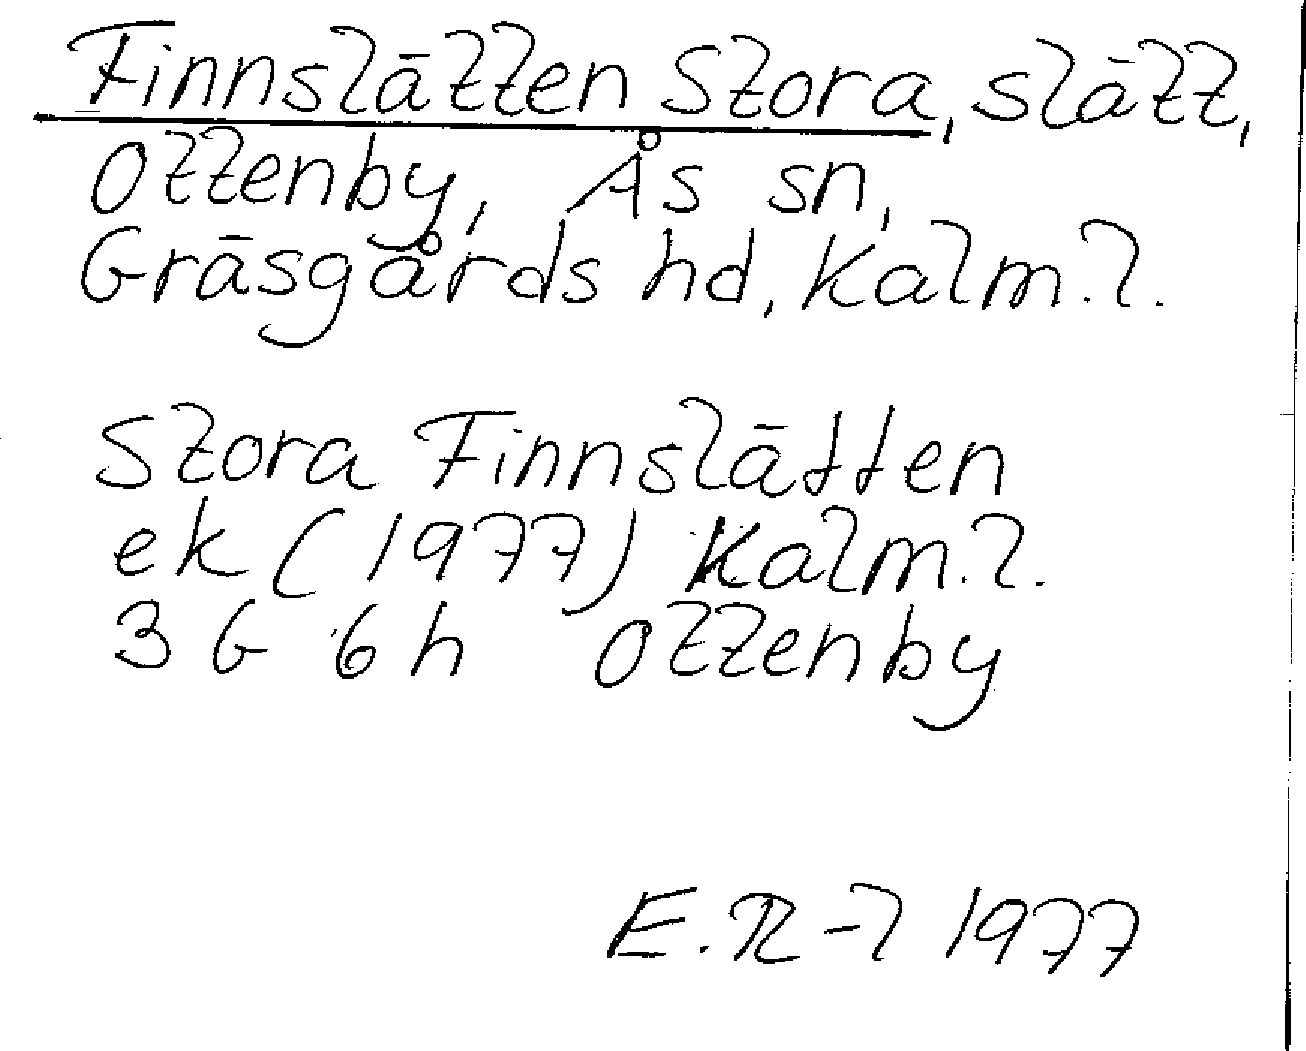 Finnslätten Stora, slätt,
Ottenby, Ås sn,
Gräsgårds hd, Kalm. l.
Stora Finnslätten
ek (1977) Kalm. l.
3 G 6 h Ottenby
E. R-l 1977